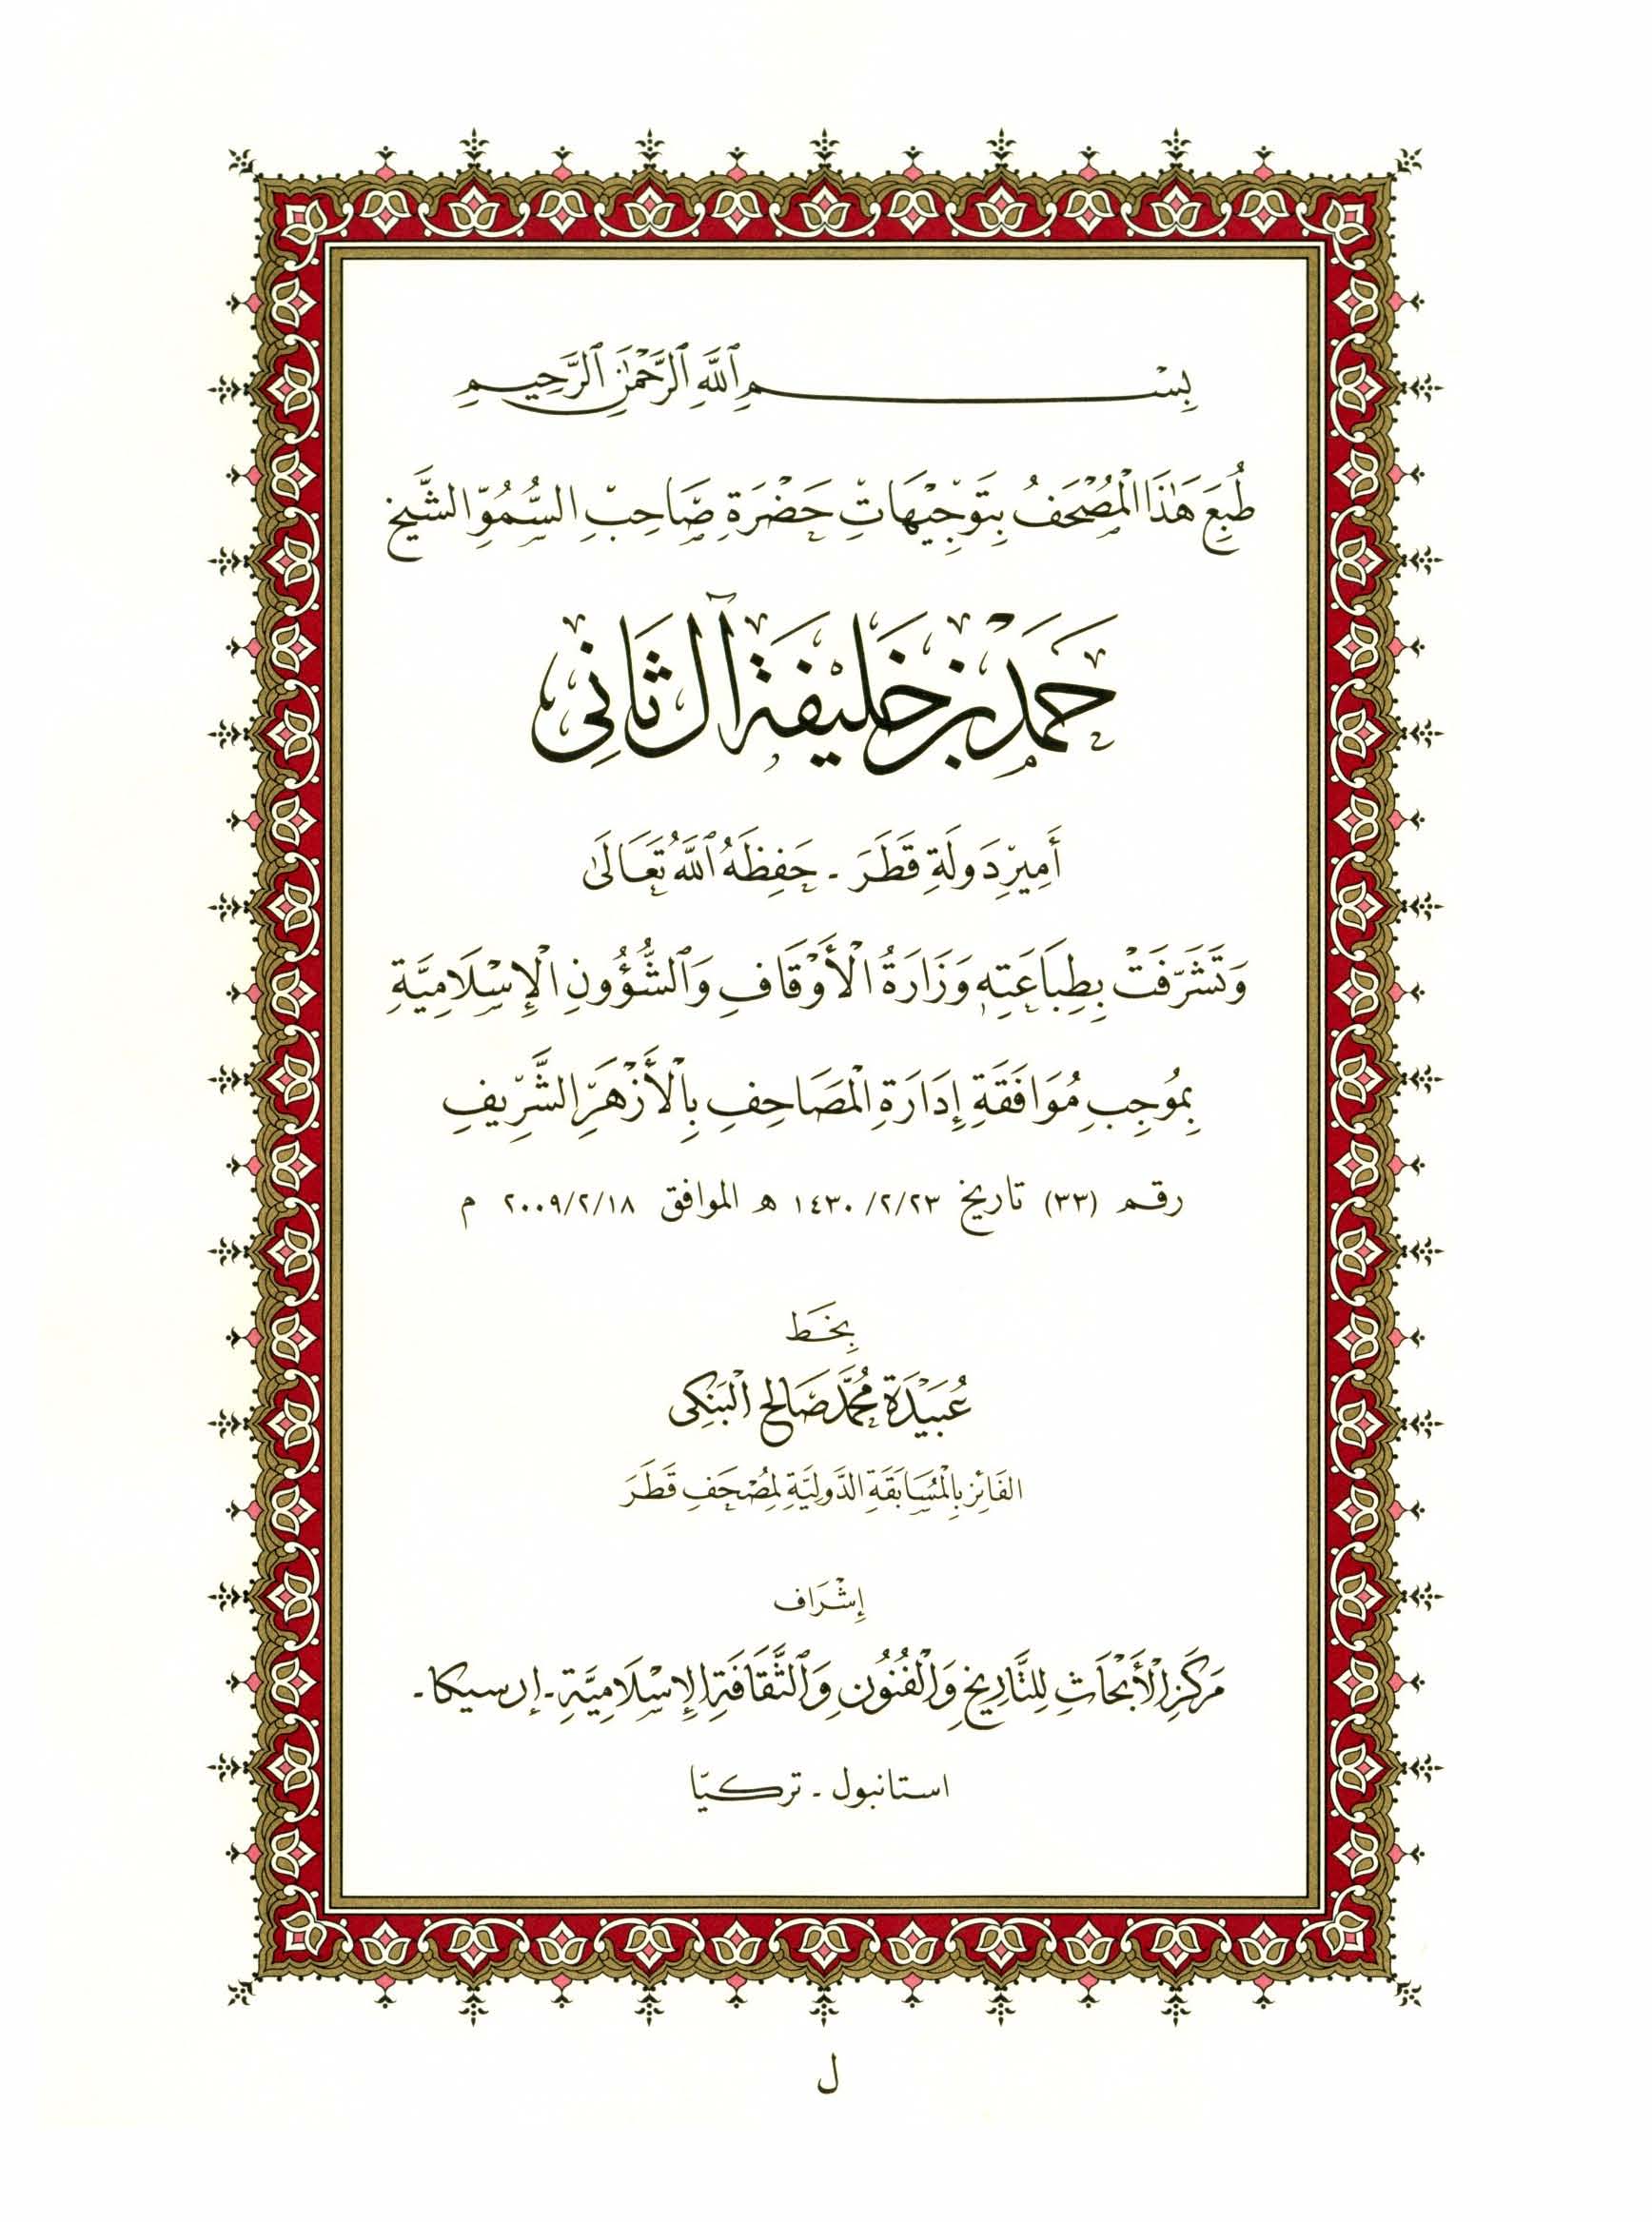 بِسْمِ ٱللَّهِ ٱلرَّحْمَٰنِ ٱلرَّحِيمِ
طُبِعَ هَٰذَا الْمُصْحَفُ بِتَوْجِيْهَاتِ حَضْرَةِ صَاحِبِ السُّمُوِّ الشَّيْخ
حَمَدْ بِنْ خَلِيْفَة آل ثَانِي
أَمِيْرِ دَولَةِ قَطَرَ - حَفِظَهُ ٱللَّهُ تَعَالَىٰ
وَتَشَرَّفَتْ بِطِبَاعَتِهِ وَزَارَةُ الْأَوْقَافِ وَٱلشُّؤُونِ الْإِسْلَامِيَّةِ
بِمُوجِبِ مُوَافَقَةِ إِدَارَةِ الْمَصَاحِفِ بِالْأَزْهَرِ الشَّرِيفِ
رقم (٣٣) تاريخ ٢٣/٢/ ١٤٣٠ هـ الموافق ٢٠٠٩/٢/١٨ م
بِخَط
عُبَيْدَة مُحَمَّد صَالِح الْبَنكِي
الفَائِز بِالْمُسَابَقَةِ الدَّولِيَّةِ لِمُصْحَفِ قَطَرَ
إِشْرَاف
مَركَزِ الْأَبْحَاثِ لِلتَّارِيخِ وَالْفُنُونِ وَٱلثَّقَافَةِ الْإِسْلَامِيَّةِ - إرسيكا -
استانبول - تركيّا
ل